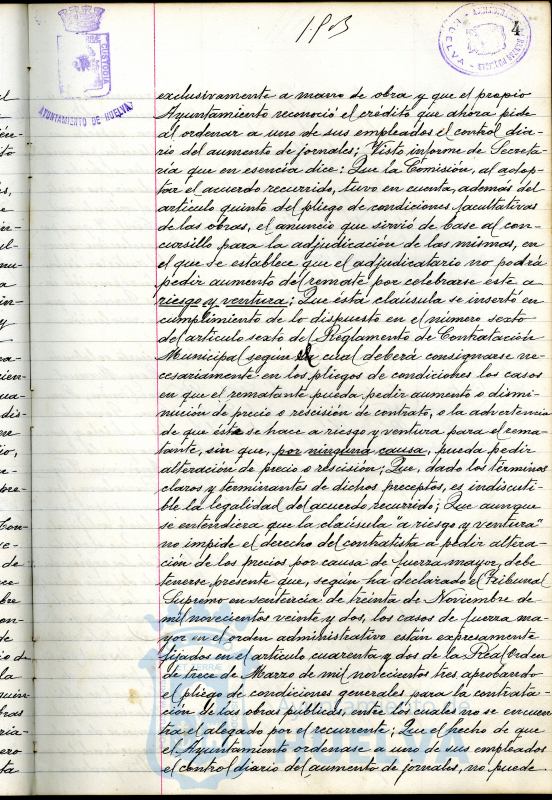 1903
4
CUSTODIA
AYUNTAMIENTO DE HUELVA
HUELVA
exclusivamente a mano de obra y que el propio
Ayuntamiento reconoció el crédito que ahora pide
al ordenar a uno de sus empleados el control dia-
rio del aumento de jornales; Visto informe de Secreta-
ría que en esencia dice: Que la Comisión, al adop-
tar el acuerdo recurrido, tuvo en cuenta, además del
artículo quinto del pliego de condiciones facultativas
de las obras, el anuncio que sirvió de base al con-
cursillo para la adjudicación de las mismas, en
el que se establece que el adjudicatario no podrá
pedir aumento del remate por celebrarse este a
riesgo y ventura; Que esta claúsula se insertó en
cumplimiento de lo dispuesto en el número sexto
del artículo sexto del Reglamento de Contratación
Municipal según el cual deberá consignarse ne-
cesariamente en los pliegos de condiciones los casos
en que el rematante pueda pedir aumento o dismi-
nución de precio o rescisión de contrato, o la advertencia
de que éste se hace a riesgo y ventura para el rema-
tante, sin que, por ninguna causa, pueda pedir
alteración de precio o rescisión; Que, dado los términos
claros y terminantes de dichos preceptos, es indiscuti-
ble la legalidad del acuerdo recurrido; Que aunque
se entendiera que la claúsula "a riesgo y ventura"
no impide el derecho del contratista a pedir altera-
ción de los precios por causa de fuerza mayor, debe
tenerse presente que, según ha declarado el Tribunal
Supremo en sentencia de treinta de Noviembre de
mil novecientos veinte y dos, los casos de fuerza ma-
yor en el orden administrativo están expresamente
fijados en el artículo cuarenta y dos de la Real Orden
de trece de Marzo de mil novecientos tres aprobando
el pliego de condiciones generales para la contrata-
ción de las obras públicas, entre los cuales no se encuen-
tra el alegado por el recurrente; Que el hecho de que
el Ayuntamiento ordenase a uno de sus empleados
el control diario del aumento de jornales, no puede
Ayuntamiento de
HUELVA